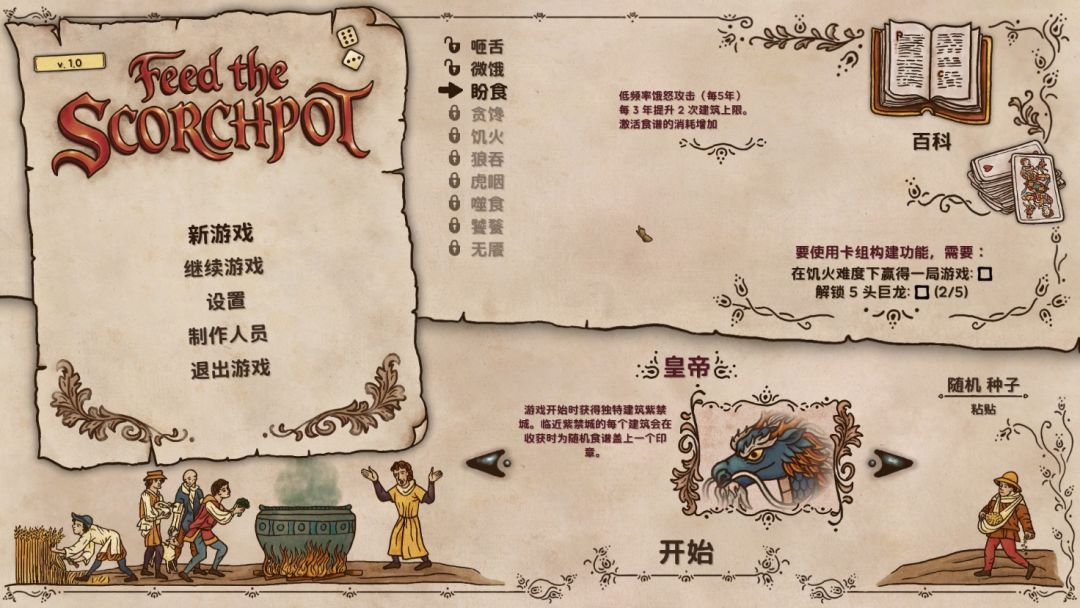 v. 1.0
Feed the
SCORCHPOT
新游戏
继续游戏
设置
制作人员
退出游戏
咂舌
微饿
盼食
贪馋
饥火
狼吞
虎咽
噬食
饕餮
无餍
低频率饿怒攻击（每5年）
每 3 年提升 2 次建筑上限。
激活食谱的消耗增加
百科
要使用卡组构建功能，需要：
在饥火难度下赢得一局游戏:
解锁 5 头巨龙: (2/5)
皇帝
游戏开始时获得独特建筑紫禁
城。临近紫禁城的每个建筑会在
收获时为随机食谱盖上一个印
章。
开始
随机 种子
粘贴